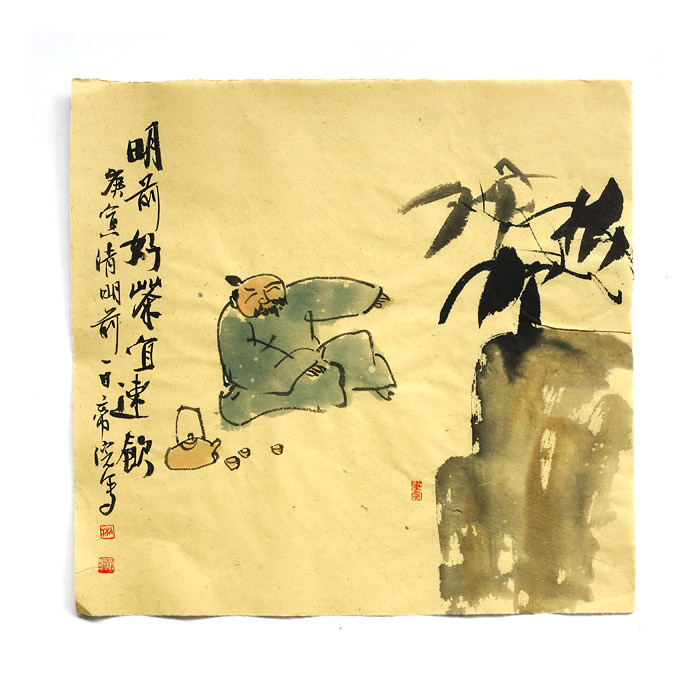 明前好茶宜速飲
庚寅清明前一日写